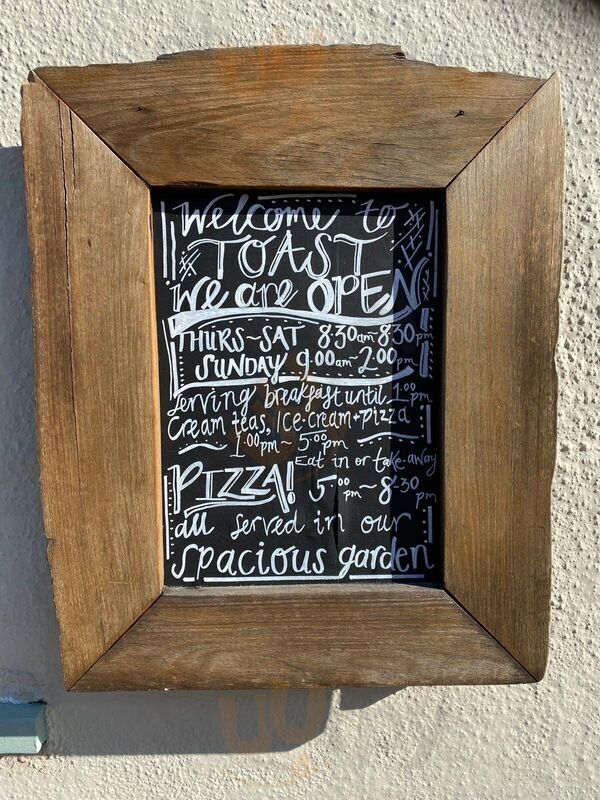 Welcome to
TOAST
We are OPEN
THURS~SAT 8·30am~8·30pm
SUNDAY 9·00am~2·00pm
serving breakfast until 1·00pm
Cream teas, Ice-cream + pizza
1·00pm ~ 5·00pm
Eat in or take-away
PIZZA! 5·00pm~8·30pm
all served in our
spacious garden